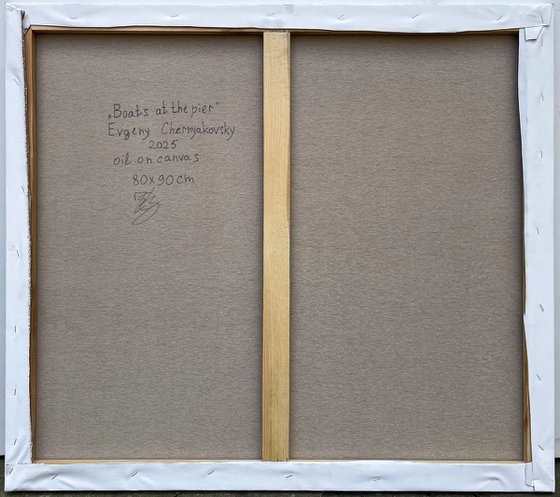 „Boats at the pier"
Evgeny Chernyakovsky
2025
oil on canvas
80x90cm